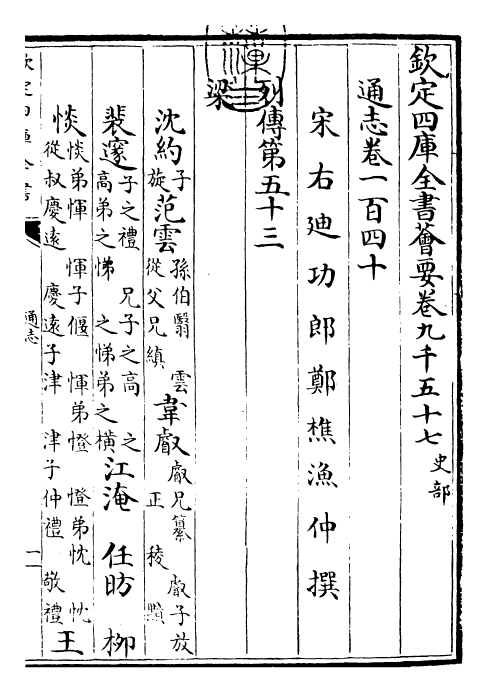 欽定四庫全書薈要卷九千五十七 史部
通志卷一百四十
宋右迪功郎鄭樵漁仲撰
列傳第五十三
梁
沈約子旋范雲孫伯翳 雲從父兄縝韋叡叡兄纂 叡子放 正 稜 黯
裴邃子之禮 兄子之高 之高弟之悌 之悌弟之橫江淹 任昉 柳
惔惔弟惲 惲子偃 惲弟憕 憕弟忱 忱從叔慶遠 慶遠子津 津子仲禮 敬禮王
欽定四庫全書
通志
一